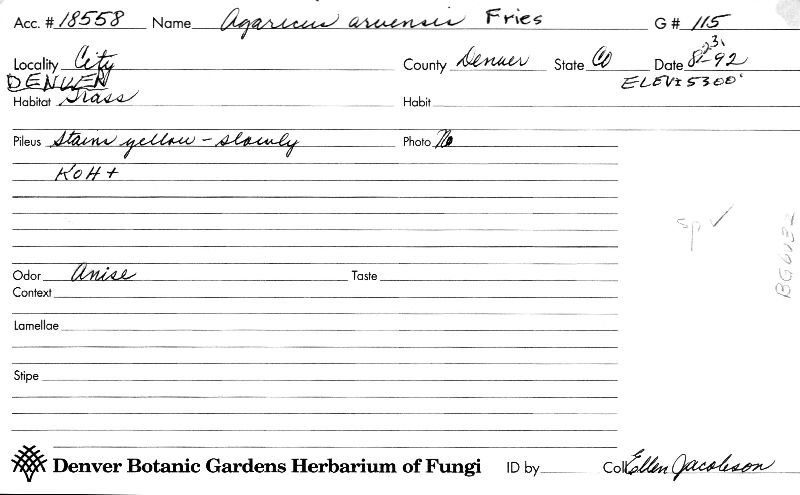 Acc. # 18558 Name Agaricus arvensis Fries G # 115
Locality City County Denver State Co Date 8-23-92
DENVER ELEV: 5300'
Habitat Grass Habit
Pileus Stains yellow - slowly Photo No
KOH +
sp ✓
Odor Anise Taste
Context
Lamellae
Stipe
Denver Botanic Gardens Herbarium of Fungi ID by Coll Ellen Jacobson